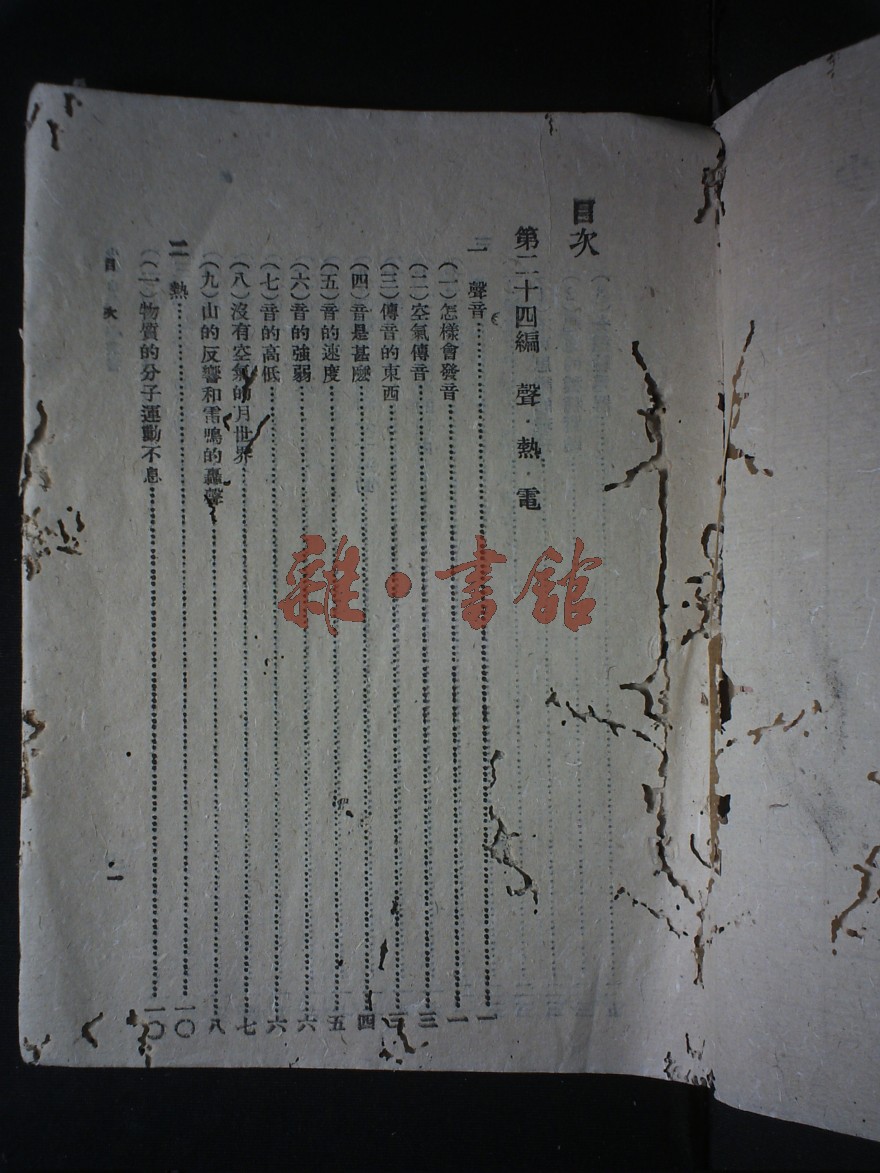 目次
第二十四編 聲·熱·電
一 聲音……一
(一)怎樣會發音……一
(二)空氣傳音……三
(三)傳音的東西……三
(四)音是甚麼……四
(五)音的速度……五
(六)音的強弱……六
(七)音的高低……六
(八)沒有空氣的月世界……七
(九)山的反響和雷鳴的轟聲……八
二 熱……一〇
(一)物質的分子運動不息……一〇
目次
一
雜·書館